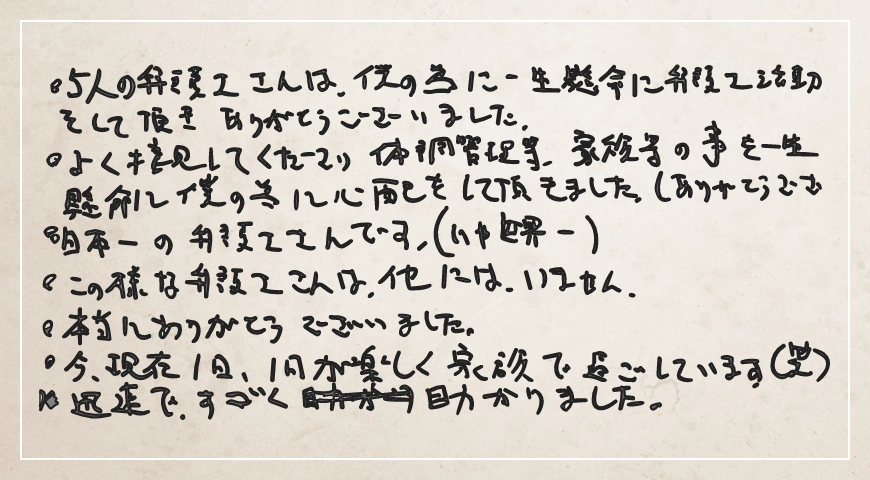 ・5人の弁護士さんは、僕の為に一生懸命に弁護士活動
をして頂き ありがとうございました。
・よく接見してくださり 体調管理等、家族等の事を一生
懸命に僕の為に心配をして頂きました。(ありがとうござ
・日本一の弁護士さんです。(いや世界一)
・この様な弁護士さんは、他には、いません。
・本当にありがとうございました。
・今、現在1日、1日が楽しく家族で過ごしています(笑)
迅速で、すごく 助かりました。